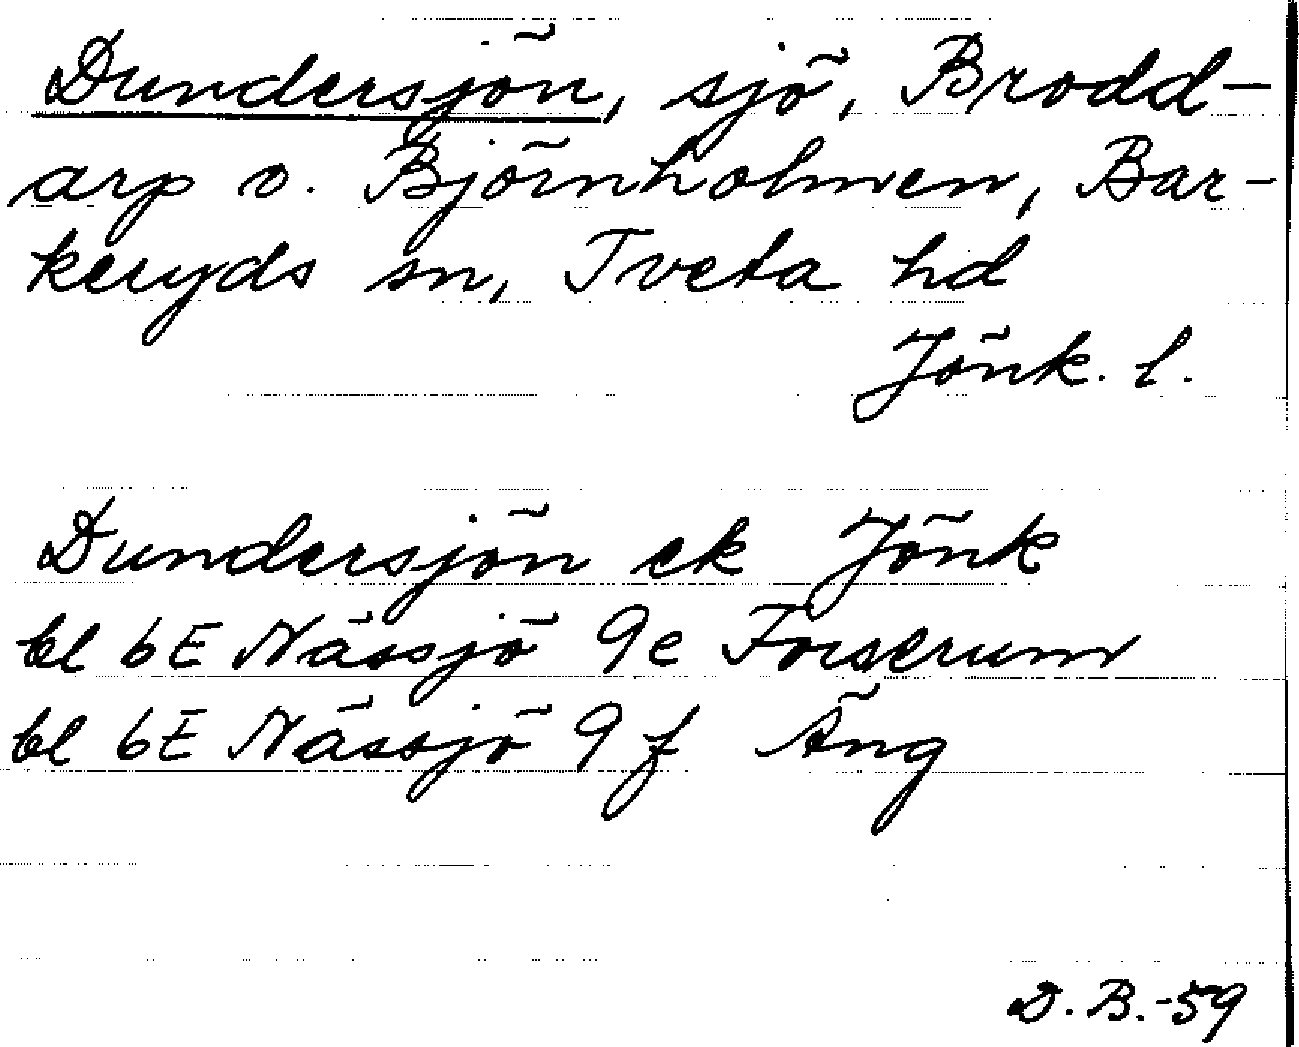 Dundersjön, sjö, Brodd-
arp o. Björnholmen, Bar-
keryds sn, Tveta hd
Jönk. l.
Dundersjön ek Jönk
bl 6E Nässjö 9e Forserum
bl 6E Nässjö 9f Äng
D.B.-59